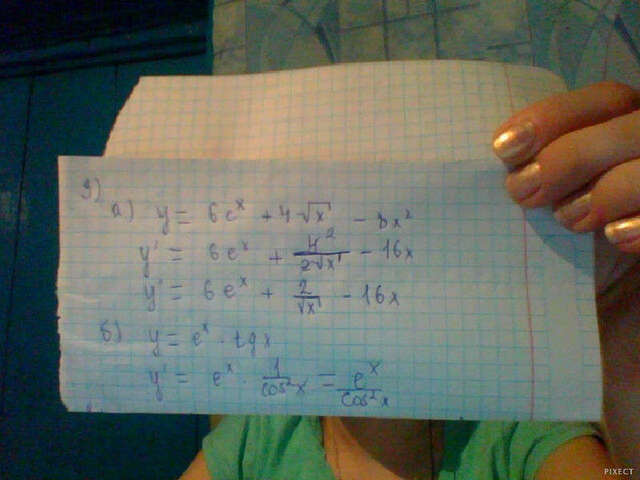 3)
а) y = 6e^x + 4√x - 8x²
y' = 6e^x + 4²/2√x - 16x
y' = 6e^x + 2/√x - 16x
б) y = e^x · tg x
y' = e^x · 1/cos²x = e^x/cos²x
PIXECT